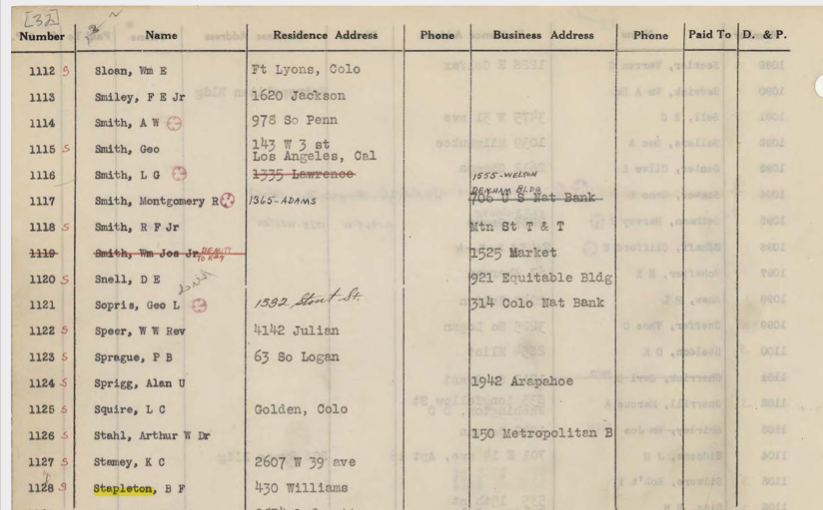 [32]
Number Name Residence Address Phone Business Address Phone Paid To D. & P.
1112 S Sloan, Wm E Ft Lyons, Colo
1113 Smiley, F E Jr 1620 Jackson
1114 Smith, A W 978 So Penn
1115 S Smith, Geo 143 W 3 st
Los Angeles, Cal
1116 Smith, L G 1335 Lawrence
1555-WELTON
DENHAM BLDG
1117 Smith, Montgomery R 1365-ADAMS 706 U S Nat Bank
1118 S Smith, R F Jr Mtn St T & T
1119 Smith, Wm Jos Jr 1525 Market
1120 S Snell, D E 921 Equitable Bldg
1121 Sopris, Geo L 1592 Stout St. 314 Colo Nat Bank
1122 S Speer, W W Rev 4142 Julian
1123 S Sprague, P B 63 So Logan
1124 S Sprigg, Alan U 1942 Arapahoe
1125 S Squire, L C Golden, Colo
1126 S Stahl, Arthur W Dr 150 Metropolitan B
1127 S Stamey, K C 2607 W 39 ave
1128 S Stapleton, B F 430 Williams